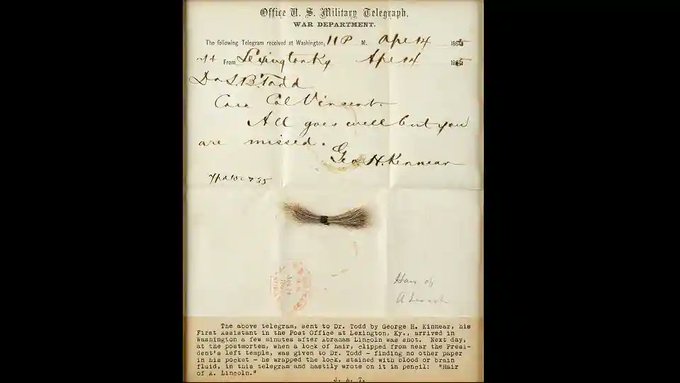 Office U. S. Military Telegraph,
WAR DEPARTMENT.
The following Telegram received at Washington, 11 P M. Apl 14 1865
From Lexington Ky Apl 14 1865
Dr L.B. Todd
Care Col Vinsent.
All goes well but you
are missed.
Geo H. Kinnear
Hair of
A Lincoln
The above telegram, sent to Dr. Todd by George H. Kinnear, his
First Assistant in the Post Office at Lexington, Ky., arrived in
Washington a few minutes after Abraham Lincoln was shot. Next day,
at the postmortem, when a lock of hair, clipped from near the Presi-
dent's left temple, was given to Dr. Todd - finding no other paper
in his pocket - he wrapped the lock, stained with blood or brain
fluid, in this telegram and hastily wrote on it in pencil: "Hair
of A. Lincoln."